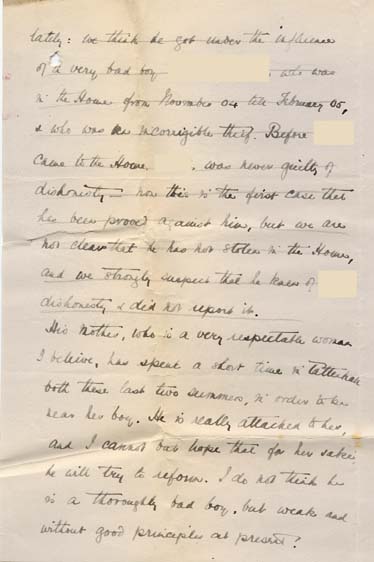 lately: we think he got under the influence
of a very bad boy , who was
in the Home from November 04 till February 05,
& who was an incorrigible thief. Before
came to the Home. . was never guilty of
dishonesty — now this is the first case that
has been proved against him, but we are
not clear that he has not stolen in the Home,
and we strongly suspect that he knew of
dishonesty & did not report it.
His mother, who is a very respectable woman
I beleive, has spent a short time in Tattenhall
both these last two summers, in order to be
near her boy. He is really attached to her,
and I cannot but hope that for her sake
he will try to reform. I do not think he
is a thoroughly bad boy, but weak and
without good principles at present!